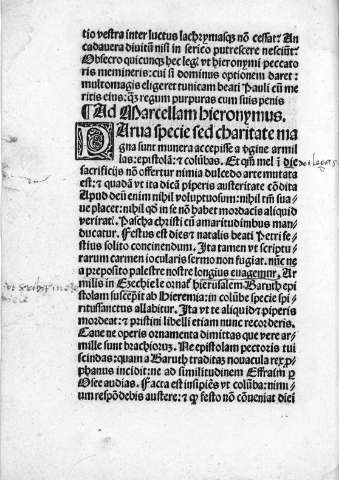 tio vestra inter luctus lachrymasqꝫ nõ cessat? An
cadavera diuitũ nisi in serico putrescere nesciũt?
Obsecro quicunqꝫ hec legꝭ vt hieronymi peccato
ris memineris: cui si dominus optionem daret:
multomagis eligeret tunicam beati Pauli cũ me
ritis eius: qꝫ regum purpuras cum suis penis
¶ Ad Marcellam hieronymus.
PArua specie sed charitate ma
gna sunt munera accepisse a v̄gine armil
las: epistolã: ⁊ colũbas. Et qm̃ mel ĩ die
sacrificijs nõ offertur nimia dulcedo arte mutata
est: ⁊ quadã vt ita dicã piperis austeritate cõdita
Apud deũ enim nihil voluptuosum: nihil tm̃ sua-
ue placet: nihil qd̓ in se nõ habet mordacis aliquid
verirat. Pascha christi cũ amaritudinibus man-
ducatur. Festus est dies ⁊ natalis beati Petri fe-
stius solito concinendum. Ita tamen vt scriptu-
rarum carmen iocularis sermo non fugiat. nũc ne
a preposito palestre nostre longius euagemur. Ar
millis in Ezechie le ornaꝭ hierusalem. Baruth epi
stolam suscepit ab Hieremia: in colũbe specie spi-
ritussanctus allabitur. Ita vt te aliquid ⁊ piperis
mordeat: ⁊ pristini libelli etiam nunc recorderis.
Caue ne operis ornamenta dimittas que vere ar-
mille sunt brachiorum. Ne epistolam pectoris tui
scindas: quam a Baruth traditas nouacula rex p̱
phanus incidit: ne ad similitudinem Effraim ꝑ
Osee audias. Facta est insipiẽs vt colũba: nimi-
um respõdebis austere: ⁊ qꝫ festo nõ cõueniat diei